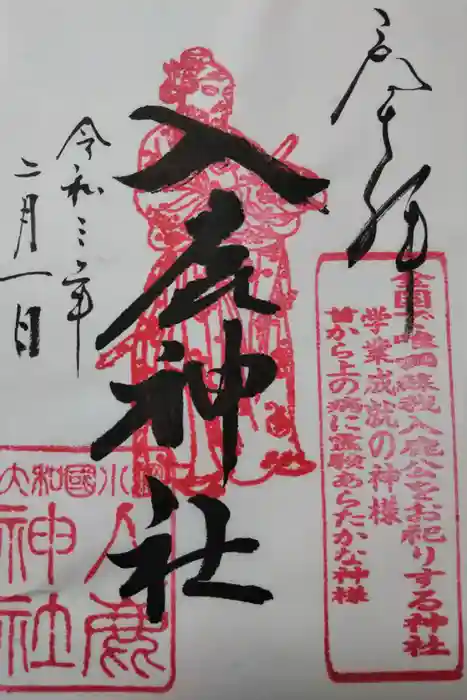 奉拝
全国で唯一蘇我入鹿公をお祀りする神社
学業成就の神様
首から上の病に霊験あらたかな神様
入鹿神社
令和三年
二月一日
大和國小綱
入鹿
神社